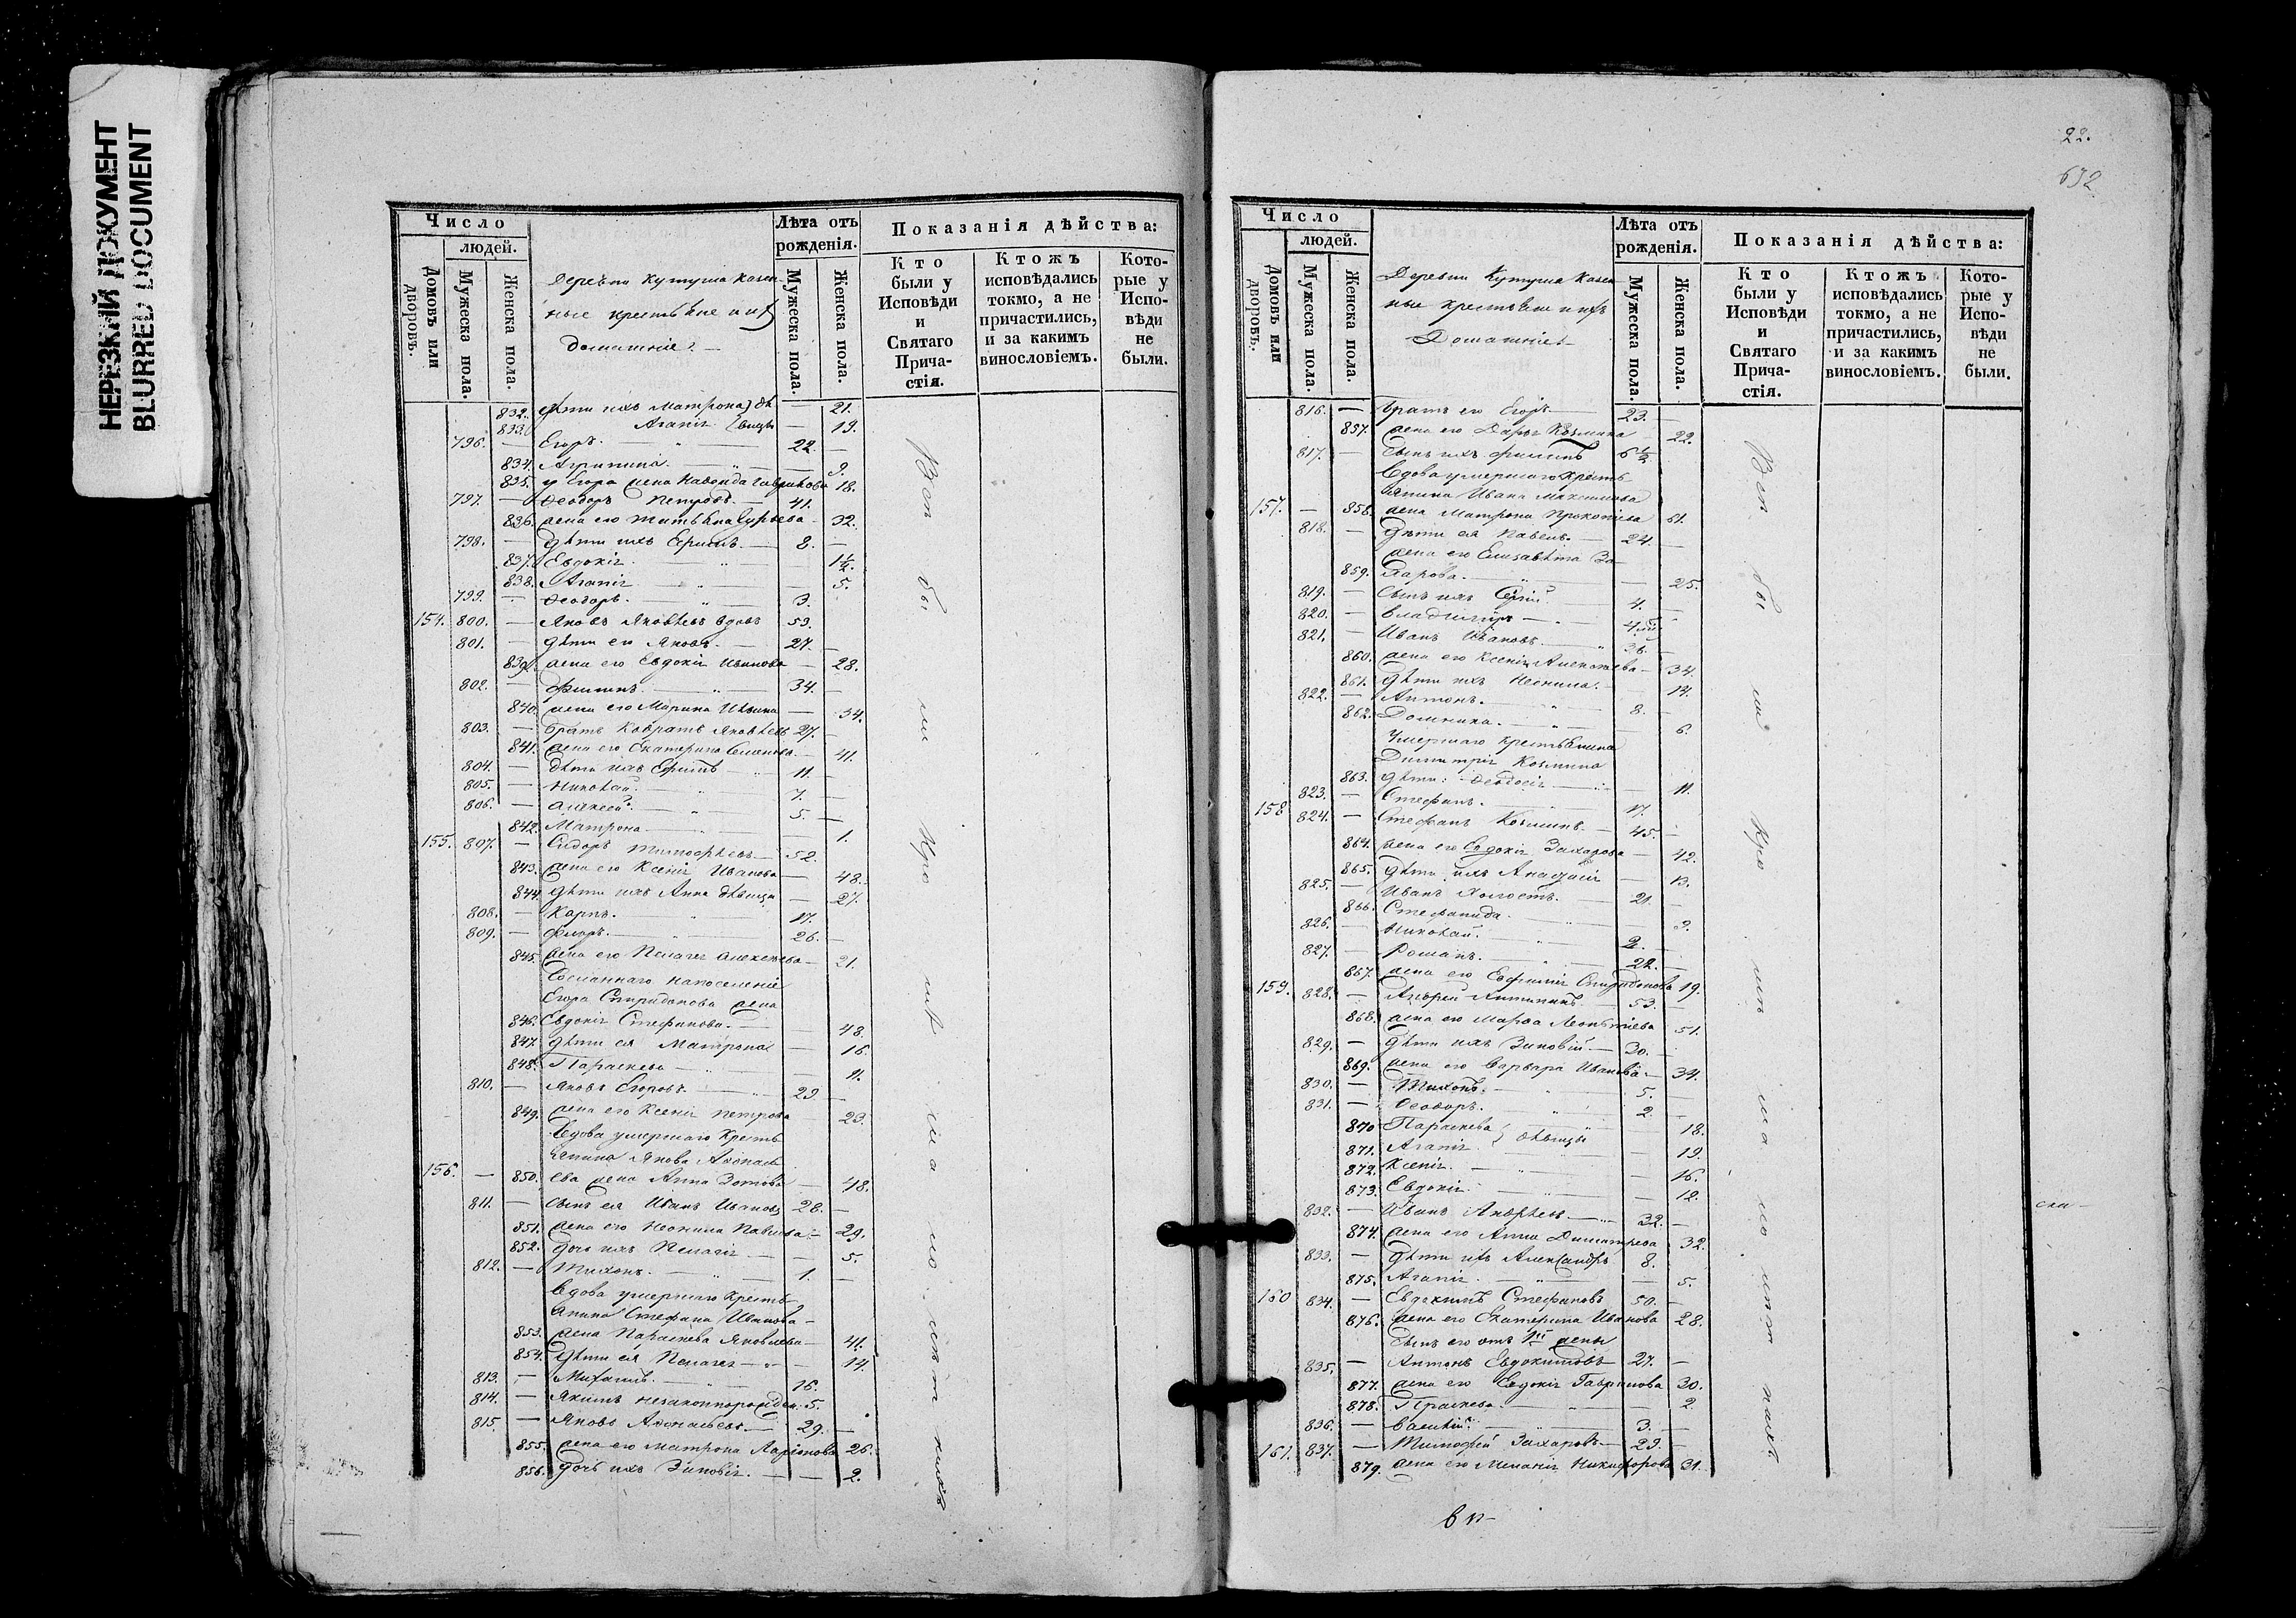 НЕРЕЗКИЙ ДОКУМЕНТ
BLURRED DOCUMENT
Число
людей.
Домовъ или дворовъ.
Мужеска пола.
Женска пола.
Деревни Кутуша Казен-
ные крестьяне и ихъ
домашніе. —
Лѣта отъ рожденія.
Мужеска пола.
Женска пола.
Показанія дѣйства:
Кто были у Исповѣди и Святаго Причастія.
Ктожъ исповѣдались токмо, а не причастились, и за какимъ винословіемъ.
Которые у Исповѣди не были.
832. дѣти ихъ Матрона дѣ — 21.
833. Агапія вицы — 19.
796. — Егоръ. — 22. —
834. Агрипина. — 9.
835. у Егора жена 18.
797. — Ѳеодоръ Петровъ. — 41.
836. жена его Гурьева — 32.
798. — дѣти ихъ Ефимъ. — 8. —
837. Евдокія. 1½.
838. Агапія — 5.
799. — Ѳеодоръ. — 3.
154. 800. — Яковъ Яковлевъ вдовъ 59.
801. — дѣти его Яковъ. — 27. —
839. жена его Евдокія Иванова — 28.
802. — Филипъ. — 34. —
840. жена его Марина — 34.
803. — Братъ Кодратъ Яковлевъ 27. —
841. жена его Екатерина Семенова — 41.
804. — дѣти ихъ Ефимъ — 11. —
805. — Николай. 7. —
806. — Алексей. 5. —
842. Матрона — 1.
155. 807. — Сидоръ Тимофѣевъ — 52.
843. жена его Ксенія Иванова — 48.
844. дѣти ихъ Анна дѣвица — 27.
808. — Карпъ. 17.
809. — Флоръ. 26. —
845. жена его Пелагея Алексеева — 21.
Сосланнаго на поселеніе
Егора Спиридонова жена
846. Евдокія Стефанова. — 48.
847. дѣти ея Матрона — 16.
848. Параскева — 11.
810. — Яковъ Егоровъ. 29 —
849. жена его Ксенія Петрова 29.
Вдова умершаго Кресть-
янина Якова Аѳонась-
156. — 850. ева жена Анна Зотова — 48.
811. — сынъ ея Иванъ Ивановъ 28. —
851. жена его Неонила Павлова — 29.
852. дочь ихъ Пелагія. — 5.
812. — Тихонъ. — 1. —
Вдова умершаго Кресть-
янина Стефана Иванова —
853. жена Параскева Яковлева — 41.
854. дѣти ея Пелагея — 14.
813. — Михаилъ. 16.
814. — Якимъ незаконнорожден. 5.
815. — Яковъ Аѳонасьевъ — 29. —
855. жена его Матрона Ларіонова 26.
856. дочь ихъ Зиновія. — 2.
22.
632
Число
людей.
Домовъ или дворовъ.
Мужеска пола.
Женска пола.
Деревни Кутуша Казен-
ные крестьяне и ихъ
Домашніе —
Лѣта отъ рожденія.
Мужеска пола.
Женска пола.
Показанія дѣйства:
Кто были у Исповѣди и Святаго Причастія.
Ктожъ исповѣдались токмо, а не причастились, и за какимъ винословіемъ.
Которые у Исповѣди не были.
816. — Братъ его Егоръ 23. —
857. жена его Дарья Козмина 22.
817. — Сынъ ихъ Филипъ
Вдова умершаго Кресть-
янина Ивана Максимова
157. — 858. жена Матрона Прокопіева 61.
818. — дѣти ея Павелъ. 24. —
жена его Елисавета За-
859. харова. 25.
819. — Сынъ ихъ Сергій 4. —
820. — Владимиръ —
821. — Иванъ Ивановъ. 36. —
860. жена его Ксенія Алексѣева — 34.
861. дѣти ихъ Неонила. 14.
822. — Антонъ. 8. —
862. Домника. 6.
Умершаго крестьянина
Димитрія Козмина
863. дѣти: Ѳеодосія — 11.
823. — Стефанъ. 17.
158 824. — Стефанъ Козминъ. — 45. —
864. жена его Евдокія Захарова — 42.
865. дѣти ихъ Анастасія — 13.
825. — Иванъ холостъ. — 21. —
866. Стефанида. 9.
826. — Николай. 2. —
827. — Романъ. 22. —
867. жена его Евфимія Спиридонова 19.
159. 828. — Андрей Антипинъ — 53. —
868. жена его Марѳа Леонтіева 51.
829. — дѣти ихъ Зиновій — 30. —
869. жена его Варвара Иванова — 34.
830. — Тихонъ. 5. —
831. — Ѳеодоръ. 2. —
870. Параскева дѣвицы 18.
871. Агапія — 19.
872. Ксенія. — 16.
873. Евдокія. — 12.
832. — Иванъ Андрѣевъ. — 32. —
874. жена его Анна Димитріева 32.
833. — дѣти ихъ Александръ 8.
875. Агапія. — 5.
160 834. — Евдокимъ Стефановъ 50. —
876. жена его Екатерина Иванова 28.
Сынъ его отъ 1й жены
835. — Антонъ Евдокимовъ 27. —
877. жена его Евдокія Гаврилова 30.
878. Праскева. — 2.
836. — Василій. 3. —
161. 837. — Тимофей Захаровъ — 29. —
879. жена его Меланія Никифорова 31.